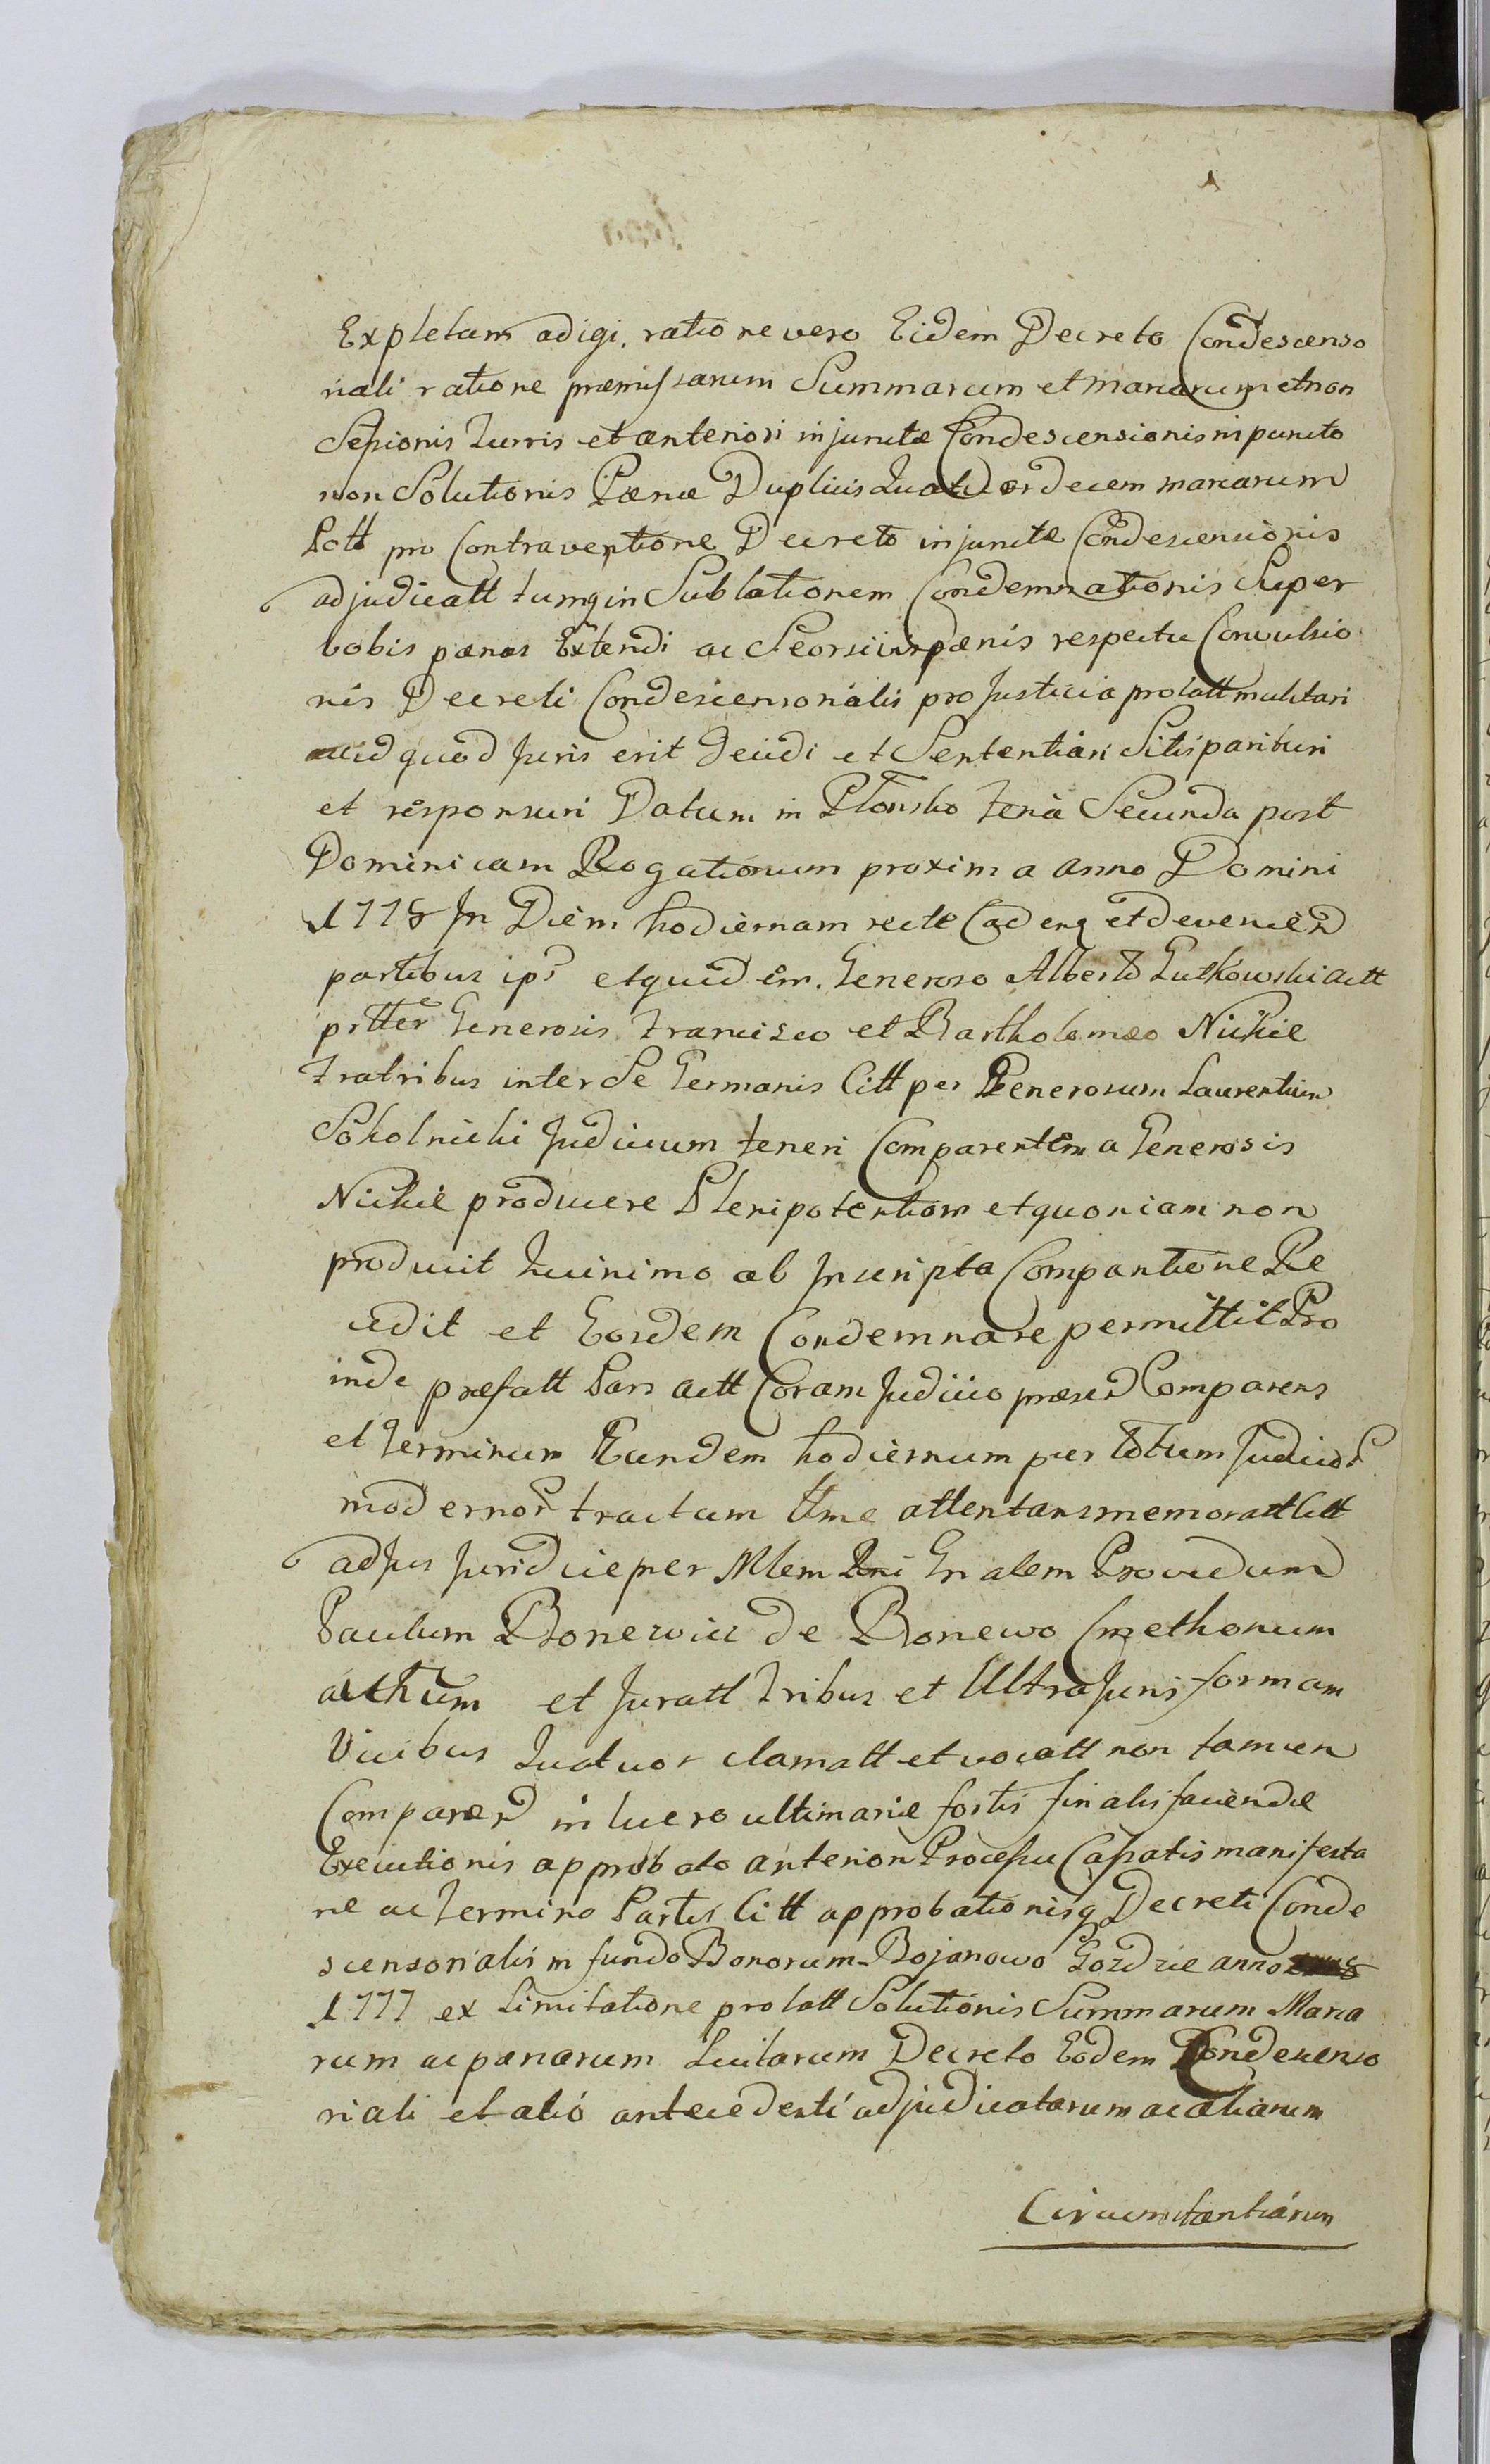 Expletam adigi, ratione vero Eidem Decreto Condescenso
riali ratione præmissarum Summarum et marcarum et non
Sessionis Turris et anteriori injunctæ Condescensionis in puncto
non Solutionis Pœnæ Duplicis Quatuordecem marcarum
Pott pro Contraventione Decreto injunctæ Condescensionis
adjudicatt tumq in Sublationem Condemnationis Super
vobis pœnas Extendi ac Seorsivis pœnis respectu Convulsio
nis Decreti Condescensorialis pro Justicia prolatt mulctari
quod Juris erit Decidi et Sententiari Sitis parituri
et responsuri Datum in Płonsko Feria Secunda post
Dominicam Rogationum proxima anno Domini
1778 In Diem hodiernam recte Cadenq et devenien
partibus ips et quidem. Generoso Alberto Gutkowski actt
prtter Generosis Francisco et Bartholomæo Nickie
Fratribus inter Se Germanis Citt per Generosum Laurentium
Sokolnicki Judicium teneri Comparentem a Generosis
Nickie producere Plenipotentiam et quoniam non
producit Quinimo ab Inscripta Comparitione Re
cedit et Eosdem Condemnare permittit Pro
inde præfatt Pars actt Coram Judicio præsen Comparens
et Terminum Eundem hodiernum per totum Judicior
modernor tractum ttme attentans memoratt Citt
ad Jus Juridice per Mlem Rni Gnalem Providum
Paulum Bonewicz de Bonewo Cmethonum
authum et Juratt Tribus et Ultra Juris formam
Vicibus Quatuor clamatt et vocatt non tamen
Comparen in lucro ultimariæ fortis finalis faciendæ
Executionis approbato anterior Processu Cassatis manifesta
ne ac Termino Partis Citt approbationisq Decreti Conde
scensorialis in fundo Bonorum Bojanowo Gozdzie anno
1777 ex Limitatione prolatt Solutionis Summarum Marca
rum ac pœnarum Luitarum Decreto Eodem Condescenso
riali et alio antecedenti adjudicatarum ac aliarum
Circumstantiarum